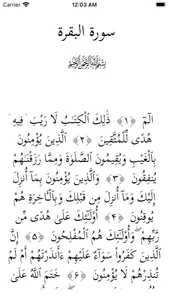 Carrier 12:03 AM
سورة البقرة
بِسْمِ اللَّهِ الرَّحْمَٰنِ الرَّحِيمِ
الٓمٓ ﴿١﴾ ذَٰلِكَ ٱلْكِتَٰبُ لَا رَيْبَ ۛ فِيهِ ۛ
هُدًى لِّلْمُتَّقِينَ ﴿٢﴾ ٱلَّذِينَ يُؤْمِنُونَ
بِٱلْغَيْبِ وَيُقِيمُونَ ٱلصَّلَوٰةَ وَمِمَّا رَزَقْنَٰهُمْ
يُنفِقُونَ ﴿٣﴾ وَٱلَّذِينَ يُؤْمِنُونَ بِمَآ أُنزِلَ
إِلَيْكَ وَمَآ أُنزِلَ مِن قَبْلِكَ وَبِٱلْءَاخِرَةِ هُمْ
يُوقِنُونَ ﴿٤﴾ أُو۟لَٰٓئِكَ عَلَىٰ هُدًى مِّن
رَّبِّهِمْ ۖ وَأُو۟لَٰٓئِكَ هُمُ ٱلْمُفْلِحُونَ ﴿٥﴾ إِنَّ
ٱلَّذِينَ كَفَرُوا۟ سَوَآءٌ عَلَيْهِمْ ءَأَنذَرْتَهُمْ أَمْ لَمْ
تُنذِرْهُمْ لَا يُؤْمِنُونَ ﴿٦﴾ خَتَمَ ٱللَّهُ عَلَىٰ